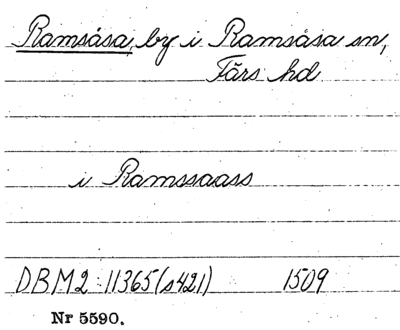 Ramsåsa, by i Ramsåsa sn,
Färs hd
i Ramssaass
DBM2:11365(s421) 1509
Nr 5590.